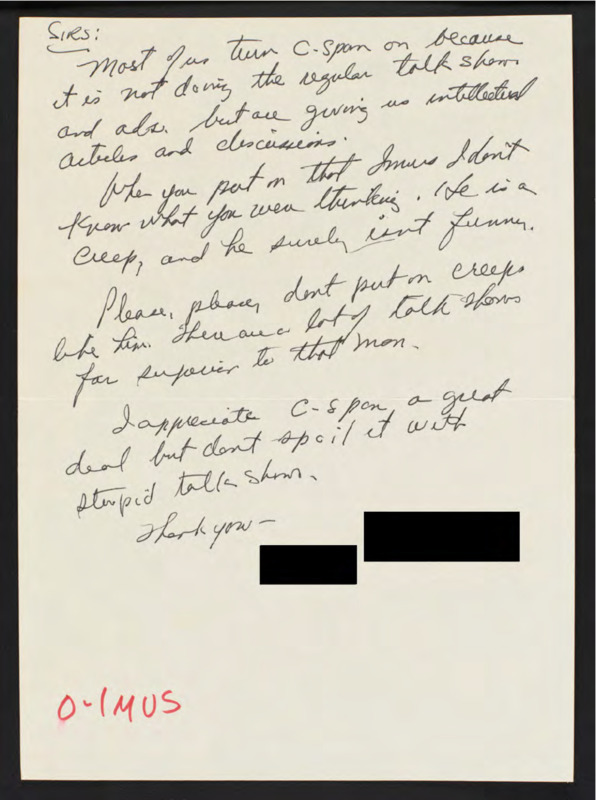 SIRS:
Most of us turn C-Span on because
it is not doing the regular talk shows
and ads. but are giving us intellectual
articles and discussions.
When you put on that Imus I don't
know what you were thinking. He is a
creep, and he surely isn't funny.
Please, please, dont put on creeps
like him. There are a lot of talk shows
far superior to that man.
I appreciate C-Span a great
deal but dont spoil it with
stupid talk shows.
Thank you -
O-IMUS